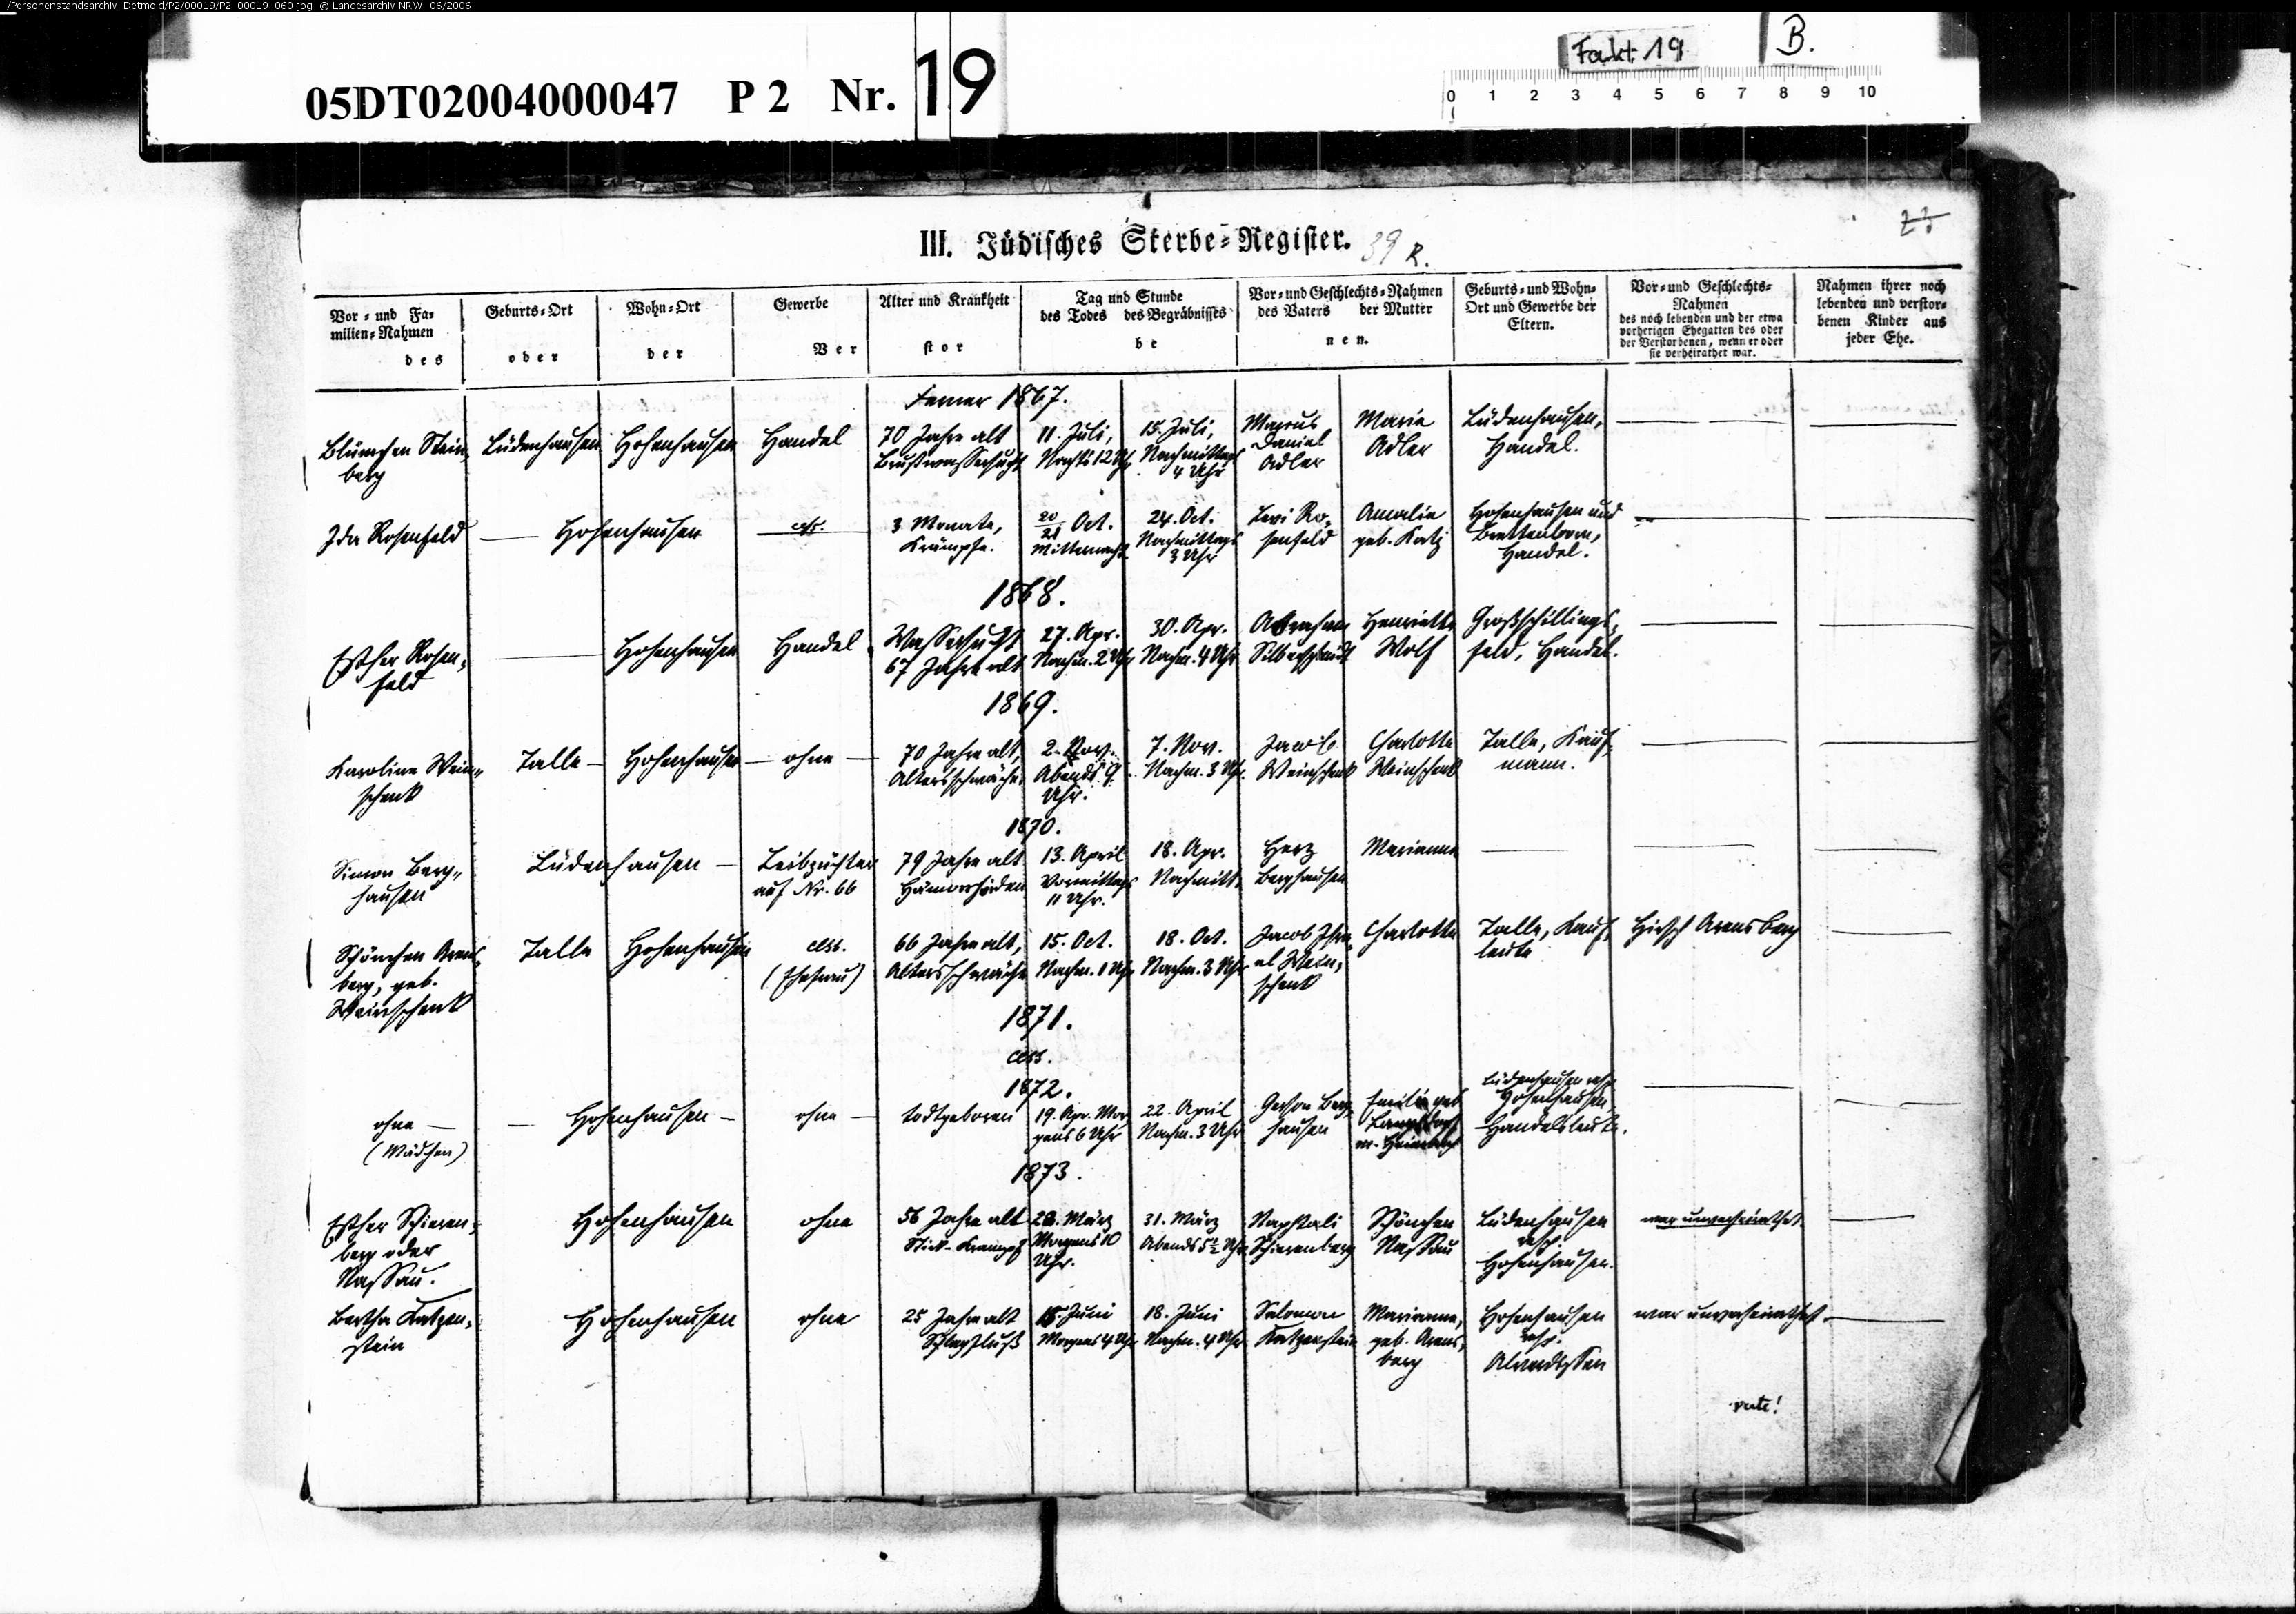 /Personenstandsarchiv_Detmold/P2/00019/P2_00019_060.jpg © Landesarchiv NRW 06/2006
05DT02004000047 P 2 Nr. 19
Fakt. 19
B.
0 1 2 3 4 5 6 7 8 9 10
23
III. Jüdisches Sterbe-Register. 39 R.
Vor- und Fa-
milien-Nahmen
des
Geburts-Ort
oder
Wohn-Ort
der
Gewerbe
Ver
Alter und Krankheit
stor
Tag und Stunde
des Todes des Begräbnisses
be
Vor- und Geschlechts-Nahmen
des Vaters der Mutter
nen.
Geburts- und Wohn-
Ort und Gewerbe der
Eltern.
Vor- und Geschlechts-
Nahmen
des noch lebenden und der etwa
vorherigen Ehegatten des oder
der Verstorbenen, wenn er oder
sie verheirathet war.
Nahmen ihrer noch
lebenden und verstor-
benen Kinder aus
jeder Ehe.
Ferner 1867.
Blümchen Stein-
berg
Lüdenhausen
Hohenhausen
Handel
70 Jahre alt
Brustwassersucht
11. Juli,
Nachts 12 Uhr
15. Juli,
Nachmittags
4 Uhr
Magnus
Daniel
Adler
Marie
Adler
Lüdenhausen,
Handel.
Ida Rosenfeld
Hohenhausen
cess.
3 Monate,
Krämpfe.
20/21 Oct.
Mitternacht
24. Oct.
Nachmittags
3 Uhr
Levi Ro-
senfeld
Amalie
geb. Katz
Hohenhausen und
Handel.
1868.
Esther Rosen-
feld
Hohenhausen
Handel
Wassersucht
67 Jahre alt
27. Apr.
Nachm. 2 Uhr
30. Apr.
Nachm. 4 Uhr
Abraham
Silberschmidt
Henriette
Wolf
Großschillings-
feld, Handel.
1869.
Karoline Wein-
schenk
Talle
Hohenhausen
ohne
70 Jahre alt,
Altersschwäche
2. Nov.
Abends 9
Uhr.
7. Nov.
Nachm. 3 Uhr.
Jacob
Weinschenk
Charlotte
Weinschenk
Talle, Kauf-
mann.
1870.
Simon Berg-
hausen
Lüdenhausen
Leibzüchter
auf Nr. 66
79 Jahre alt
Hämorrhoiden
13. April
Vormittags
11 Uhr.
18. Apr.
Nachmitt.
Herz
Berghausen
Marianne
Schönchen Arens-
berg, geb.
Weinschenk
Talle
Hohenhausen
cess.
(Ehefrau)
66 Jahre alt,
Altersschwäche
15. Oct.
Nachm. 1 Uhr
18. Oct.
Nachm. 3 Uhr
Jacob Isra-
el Wein-
schenk
Charlotte
Talle, Kauf-
leute
Hirsch Arensberg
1871.
cess.
1872.
ohne
(Mädchen)
Hohenhausen
ohne
todtgeboren
19. Apr. Mor-
gens 6 Uhr
22. April
Nachm. 3 Uhr
Gerson Berg-
hausen
Emilie geb.
Lüdenhausen resp.
Hohenhausen
Handelsleute.
1873.
Esther Schieren-
berg oder
Nassau.
Hohenhausen
ohne
56 Jahre alt
Stick-Krampf
28. März
Morgens 10
Uhr.
31. März
Abends 5½ Uhr
Naphtali
Schierenberg
Schönchen
Nassau
Lüdenhausen
resp.
Hohenhausen.
war unverheirathet.
Bertha Katzen-
stein
Hohenhausen
ohne
25 Jahre alt
Schlagfluß
15. Juni
Morgens 4 Uhr
18. Juni
Nachm. 4 Uhr
Salomon
Katzenstein
Marianne,
geb. Arens-
berg
Hohenhausen
resp.
Alverdissen
war unverheirathet.
verte!